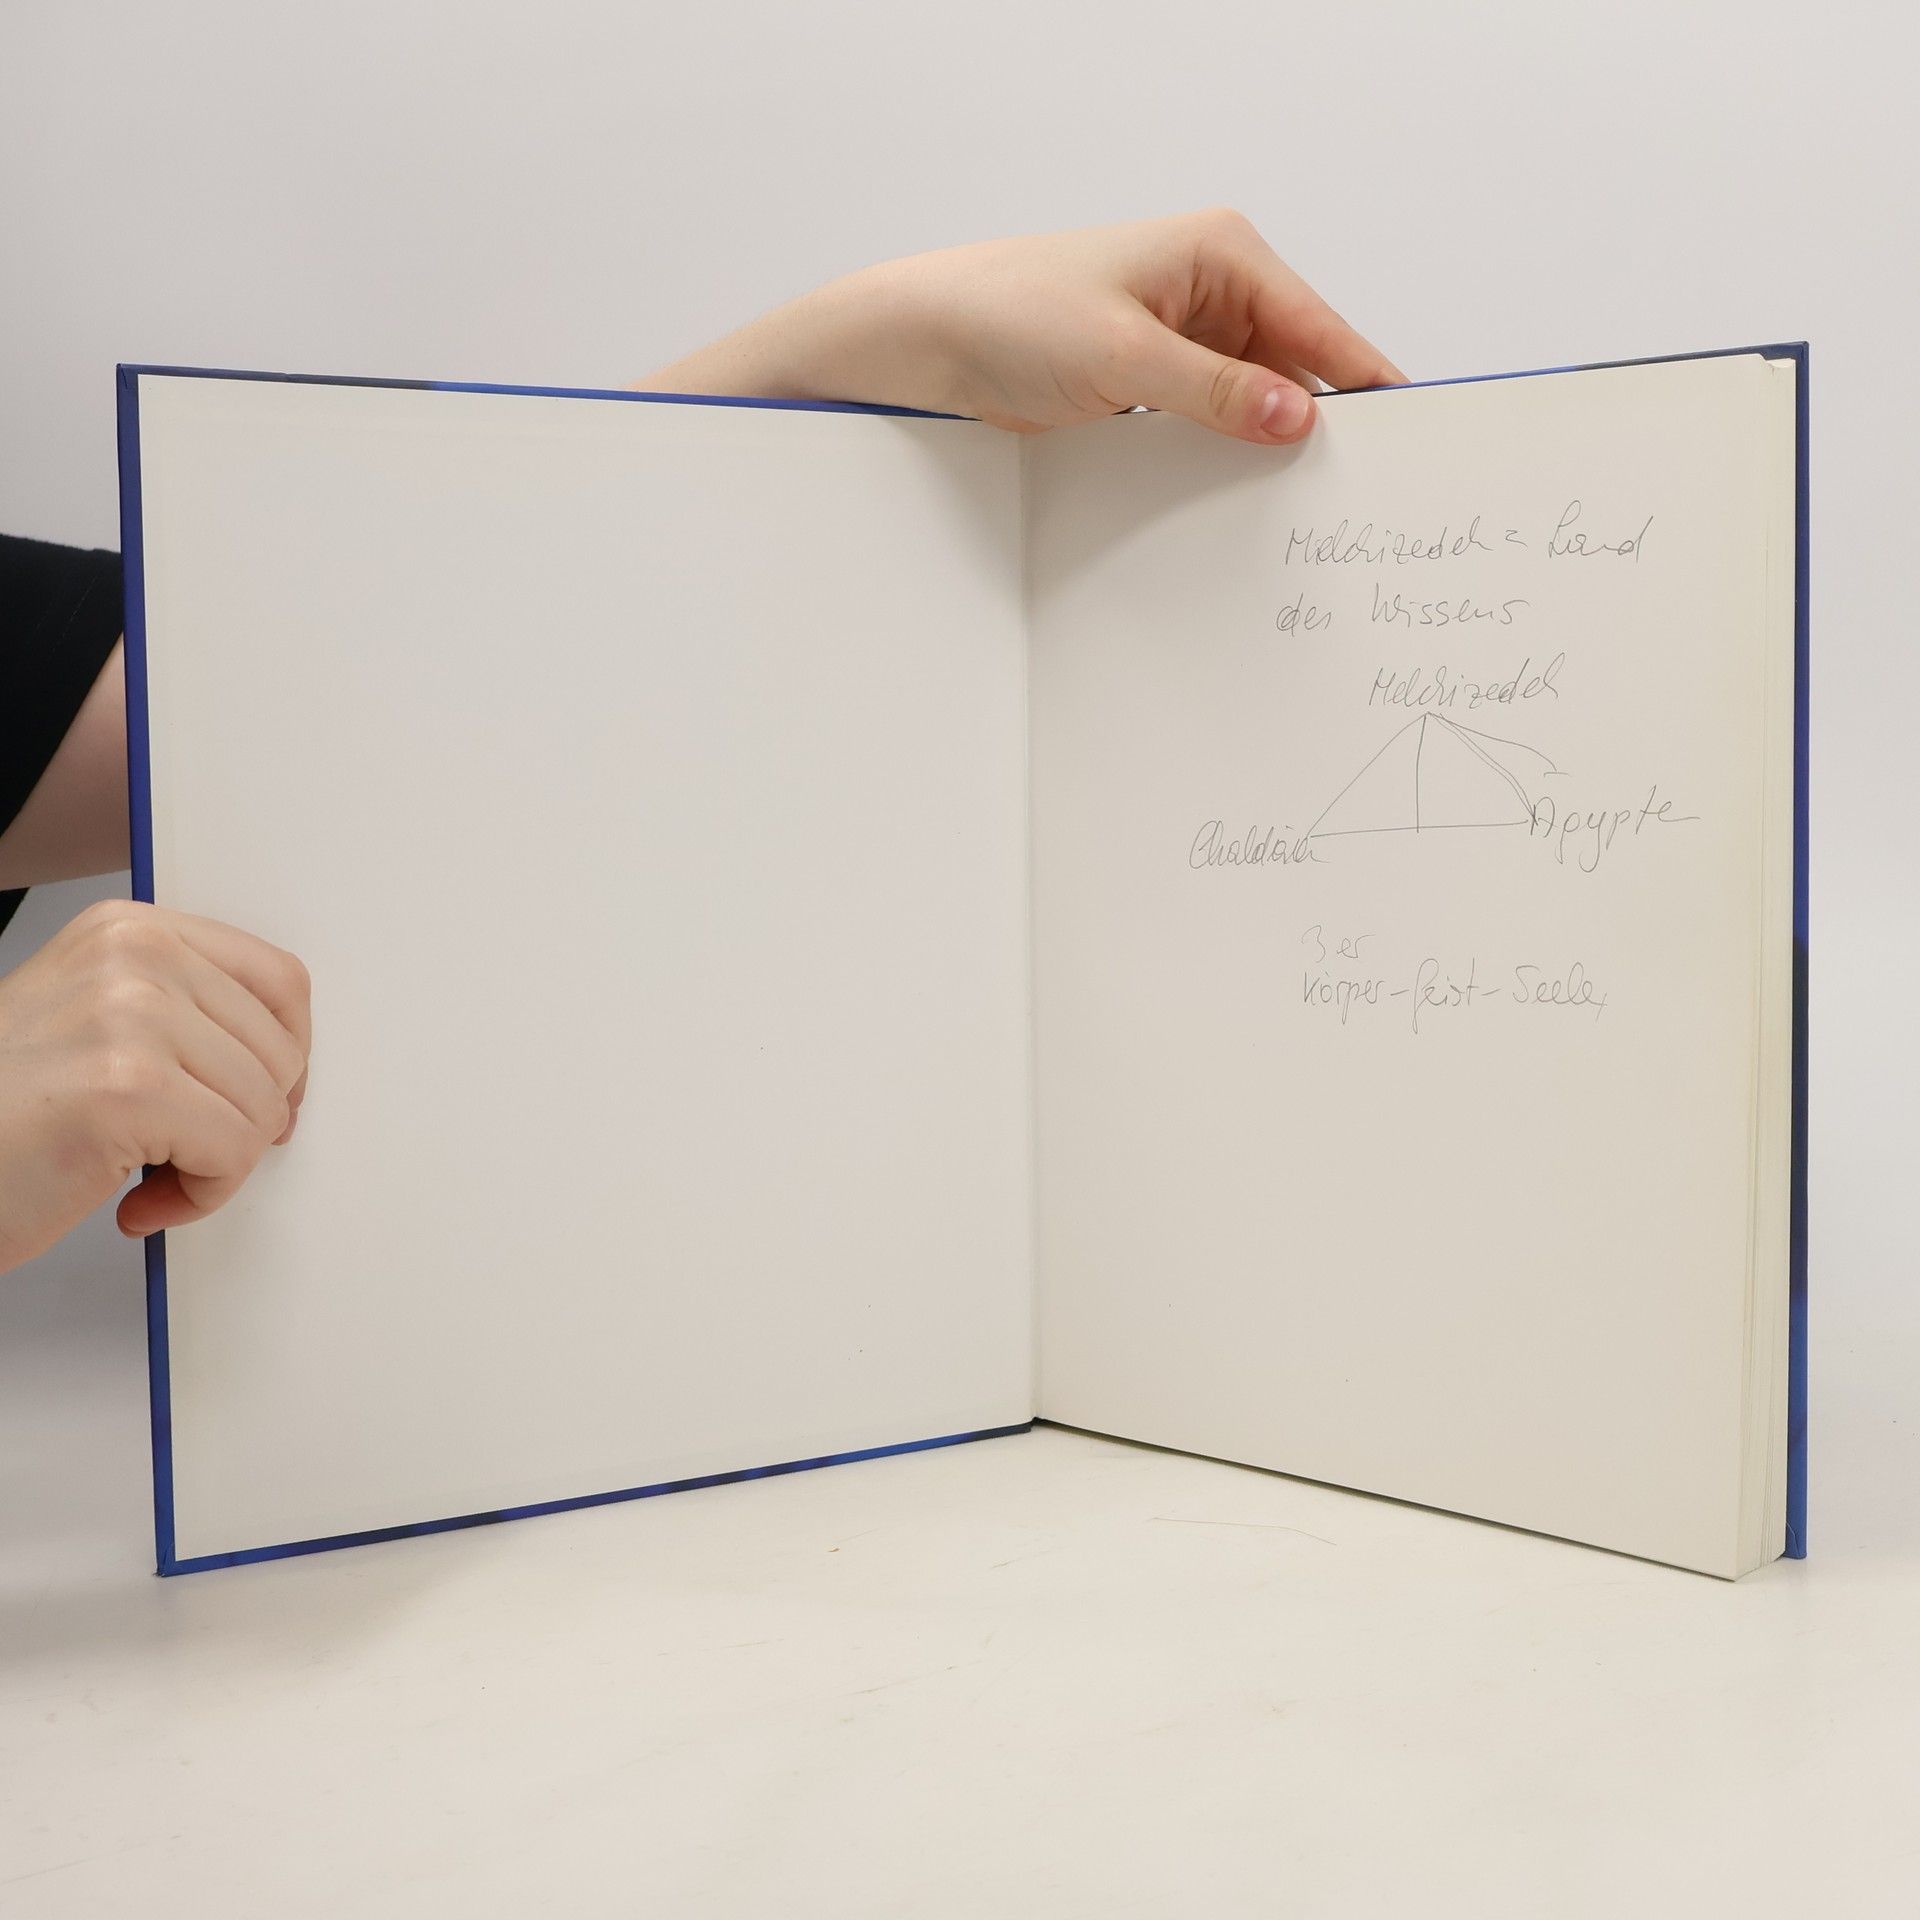 Melchizedek = Land
des Wissens
Melchizedek
Chaldäa Ägypte
3 er
Körper – Geist – Seele